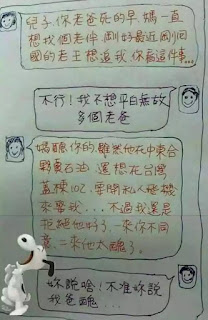 兒子,你老爸死的早,媽一直
想找個老伴,剛好最近剛回
國的老王想追我,你看這件事...
不行!我不想平白無故
多個老爸
媽聽你的,雖然他在中東合
夥賣石油,還想在台灣
蓋棟102,要開私人飛機
來娶我...不過我還是
拒絕他好了,一來你不同
意,二來他太醜了。
妳說啥!不准妳說
我爸醜...